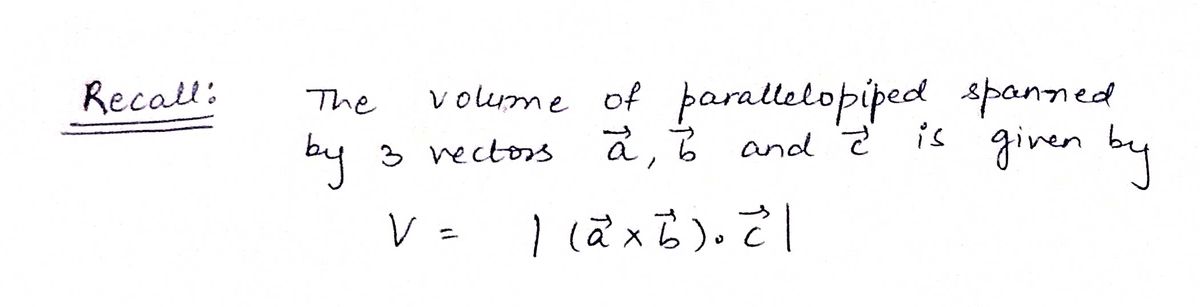 Recall: The volume of parallelopiped spanned
by 3 vectors a⃗, b⃗ and c⃗ is given by
V = | (a⃗ × b⃗) . c⃗ |